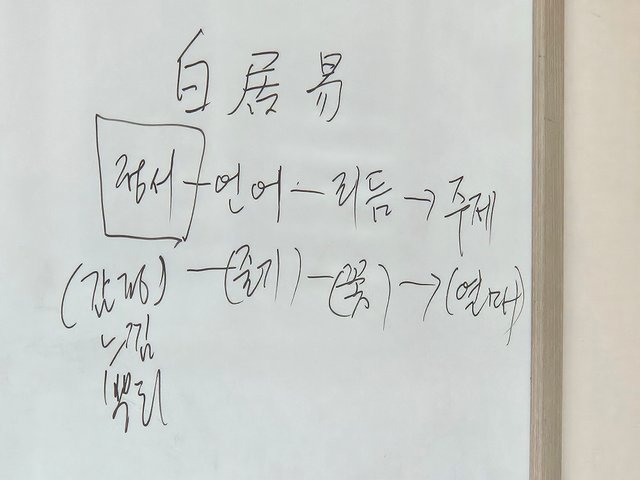 白居易
정서 - 언어 - 리듬 → 주제
(감정) - (줄기) - (꽃) → (열매)
느낌
뿌리